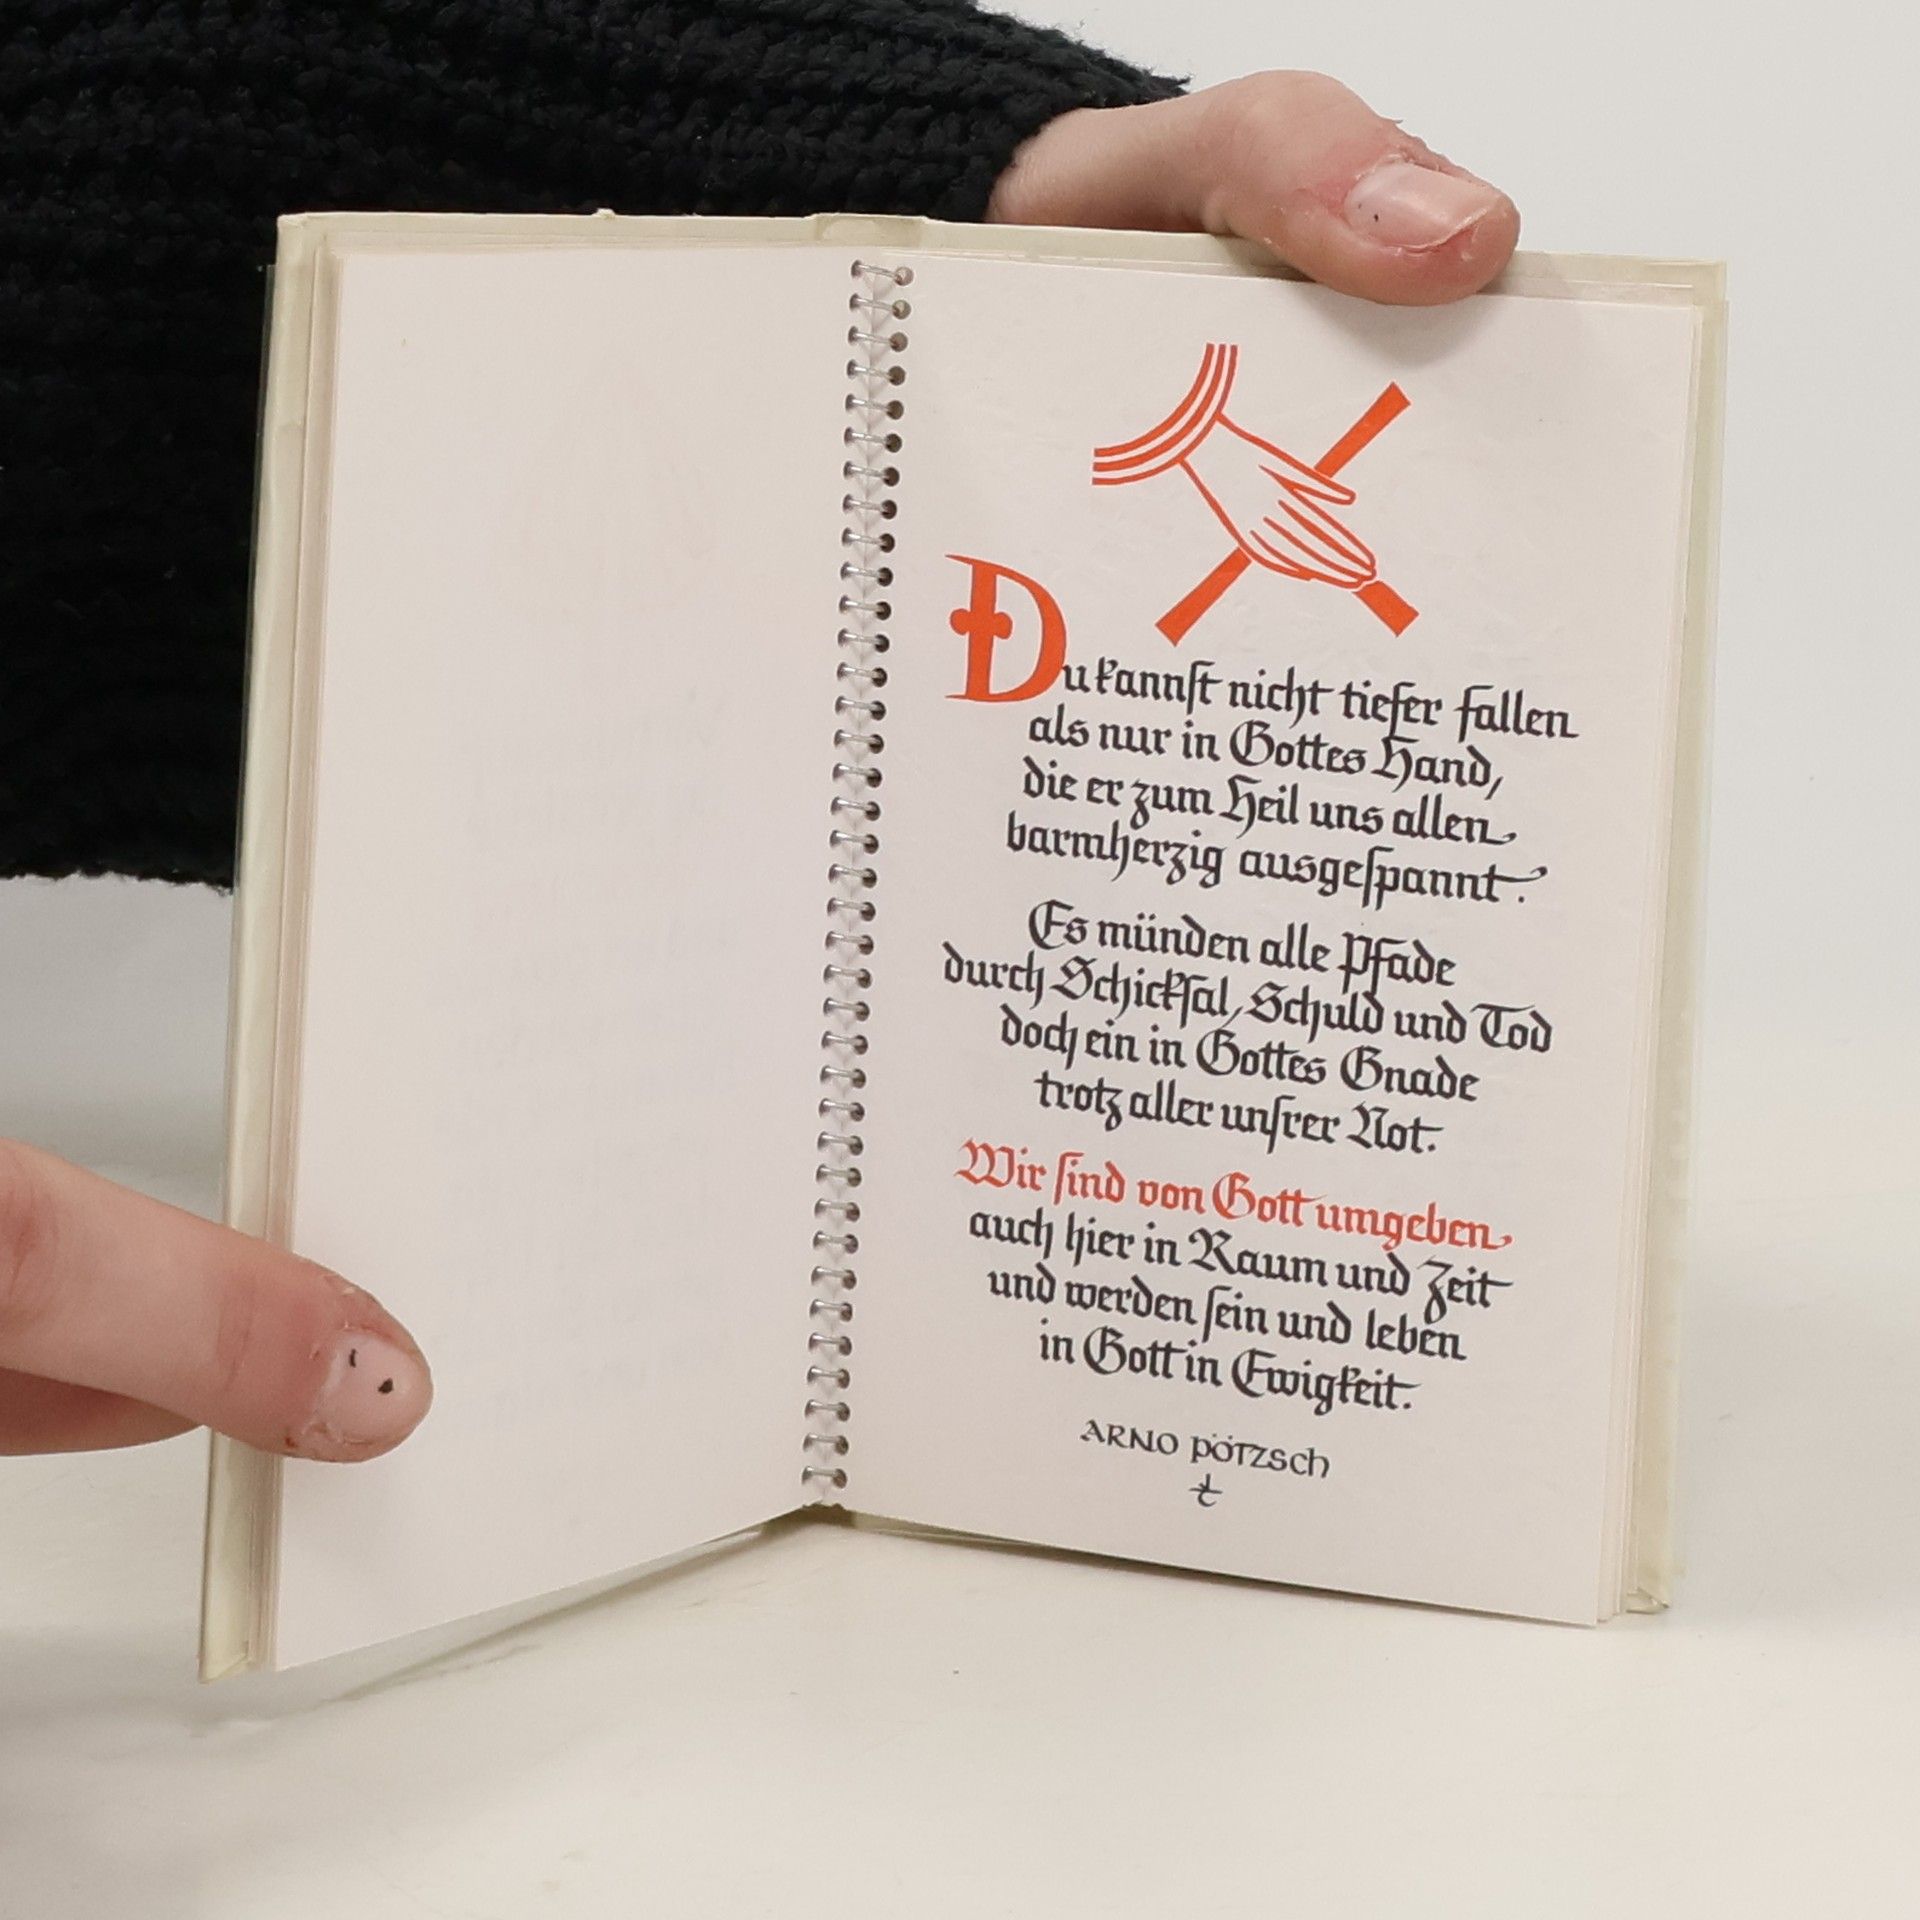 Du kannſt nicht tiefer fallen
als nur in Gottes Hand,
die er zum Heil uns allen
barmherzig ausgeſpannt.
Es münden alle Pfade
durch Schickſal, Schuld und Tod
doch ein in Gottes Gnade
trotz aller unſrer Not.
Wir ſind von Gott umgeben
auch hier in Raum und Zeit
und werden ſein und leben
in Gott in Ewigkeit.
ARNO PÖTZSCH